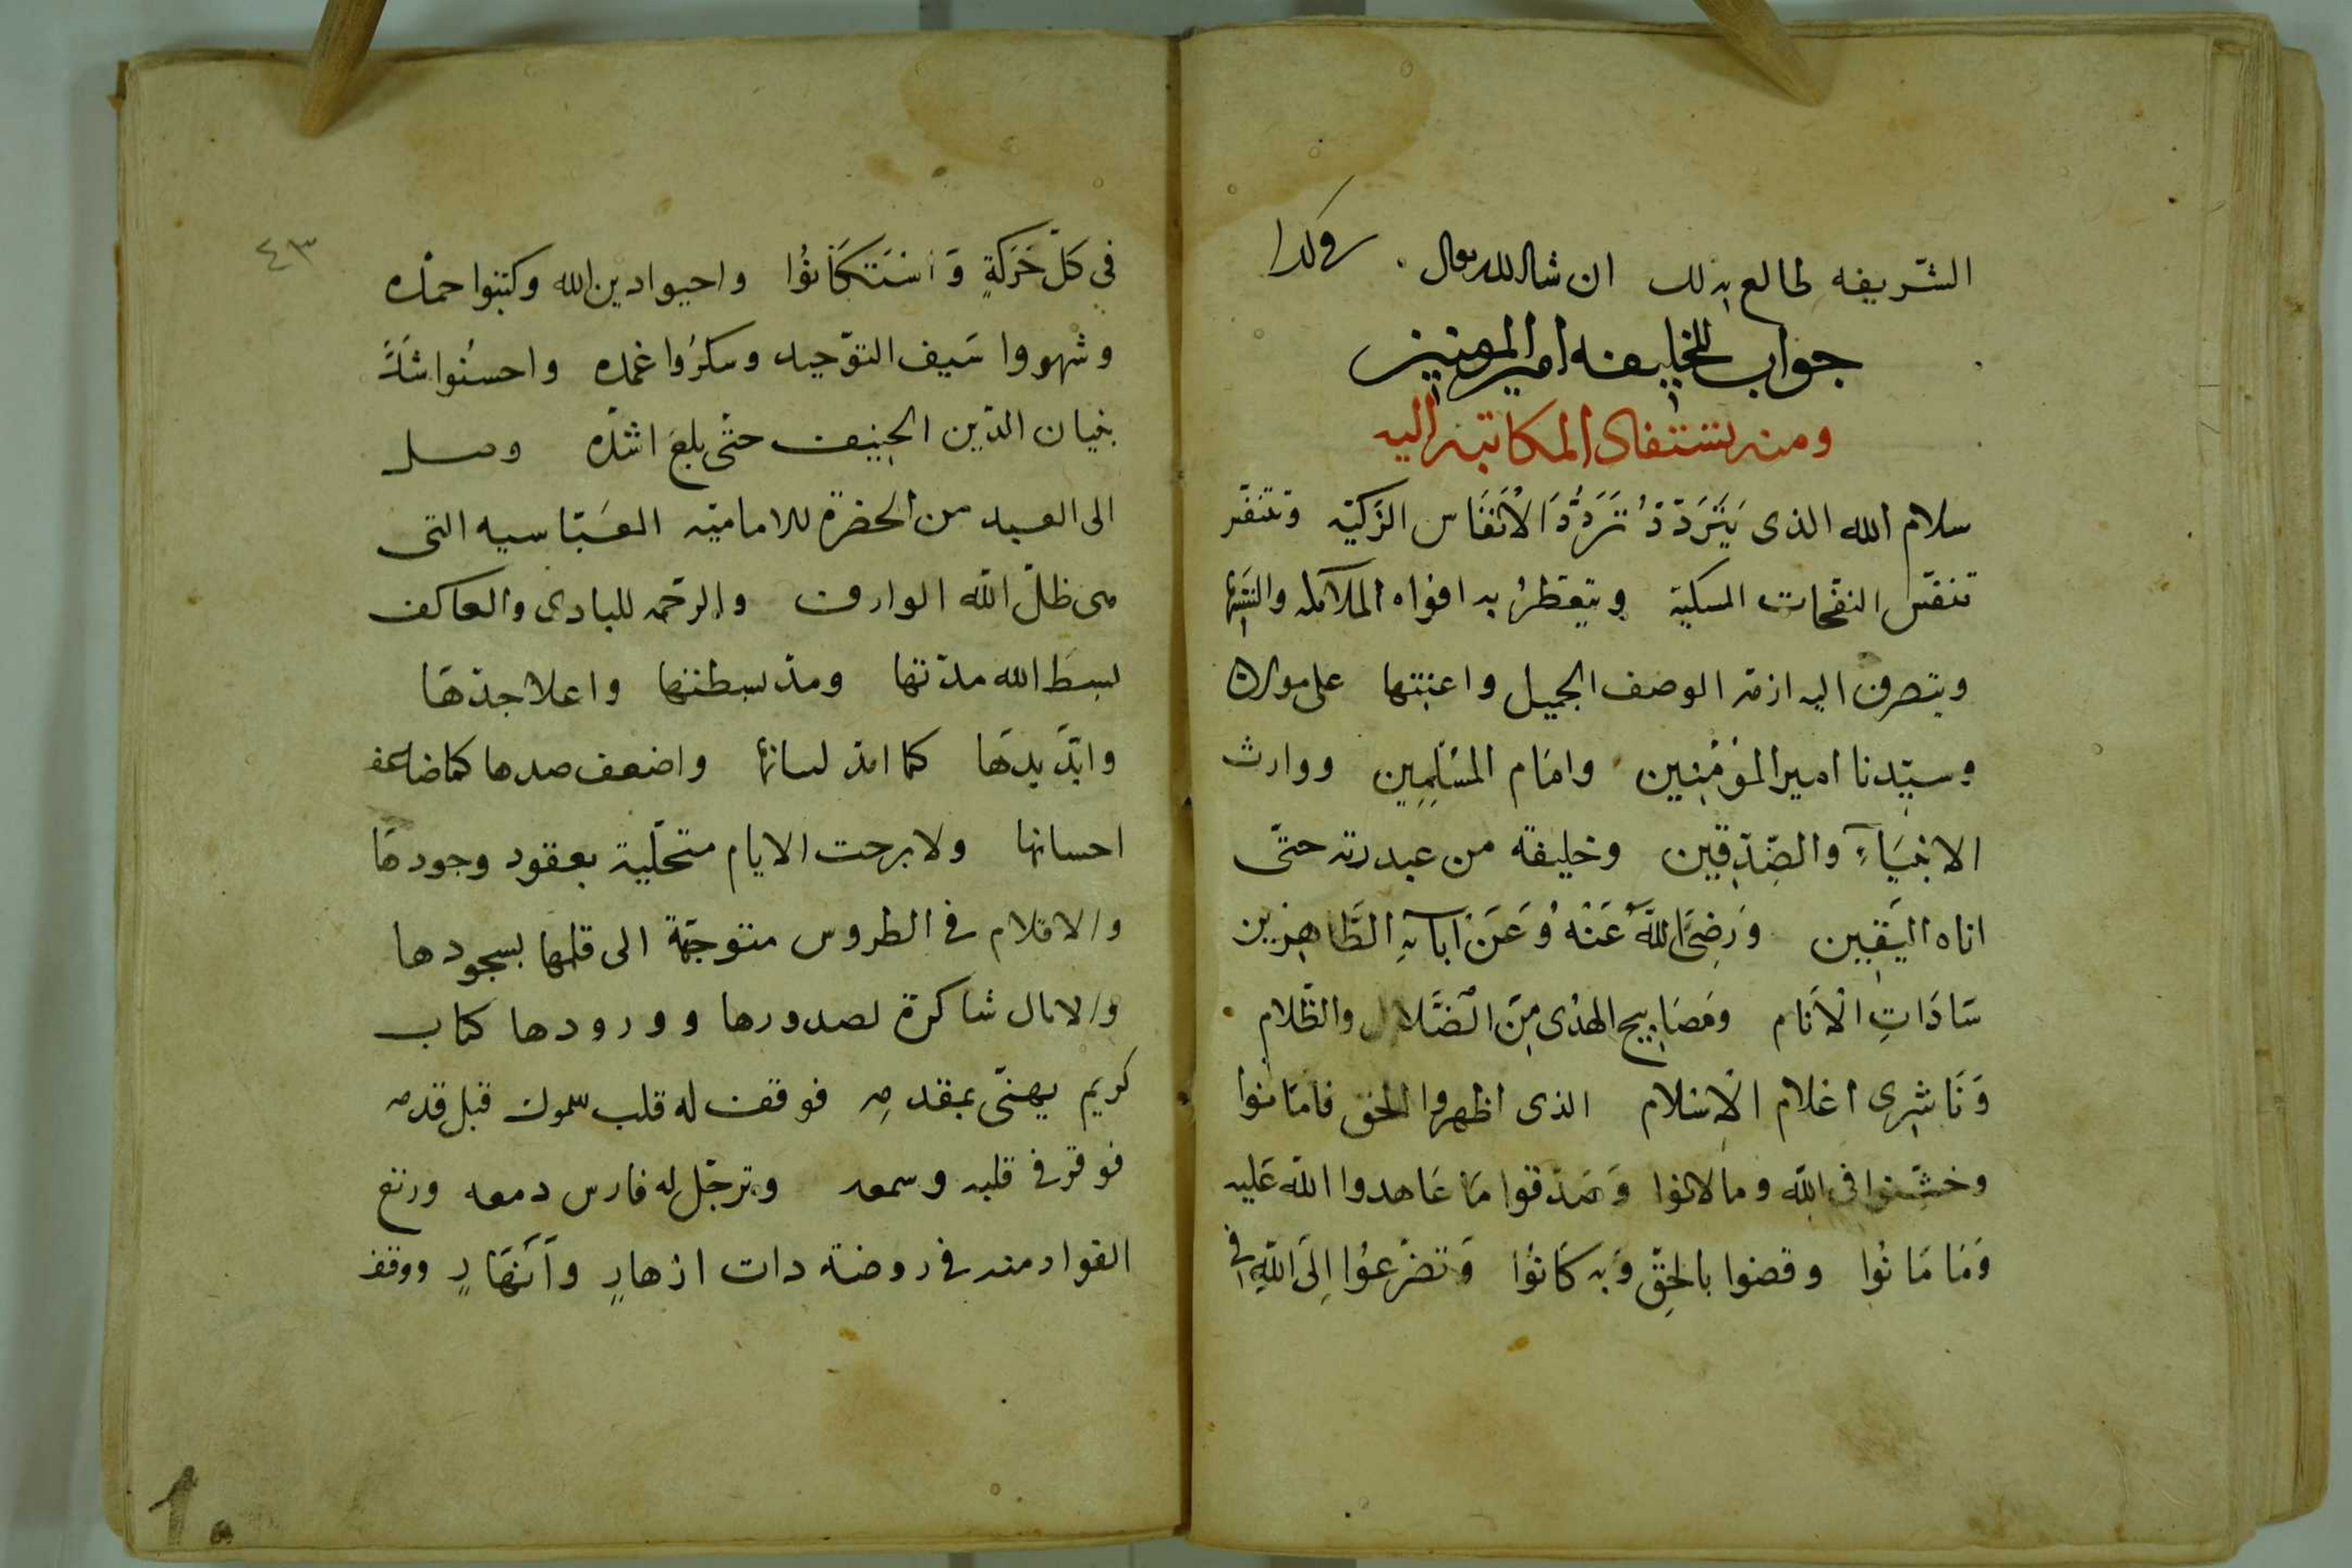 الشّريفه طالع بذلك ان شا الله تعالى . وكذا
جواب للخليفه امير المومنين
ومنه يستفاد المكاتبه اليه
سلام الله الذى يَتَرَدّدُ تَرَدُّدَ الأَنفَاس الزكيّه وتتنفّس
تنفّس النفحات المسكية ويتعطرُ به افواه الملائكه
ويتصرف اليه ازمّة الوصف الجميل واعنتها على مولانا
وسيّدنا امير المؤمنين وامَام المسْلِمِين ووارث
الانبيَاءِ والصّدّقين وخليفة من عبد ربّه حتى
اتاه اليَقين وَرَضِىَ اللَّه عَنْهُ وَعَنْ آبائِهِ الطَّاهِرِين
سَادَاتِ الْأَنَام ومَصَابِيح الهدى مِنَ الضَّلال والظّلام
وَنَاشِرى اعْلام الْاسْلام الذى اظهروا الحق فامَانوا
وخشّنوا فى الله وما لانوا وَصَدَقوا مَا عَاهدوا الله عَليه
وَمَا مَانُوا وقضوا بالحقّ وَبه كَانُوا وَتضرّعُوا إِلَى اللهِ فى
٤٣
فى كلّ حَرَكةٍ وَاسْتَكَانُوا واحيوا دين الله وكتبوا حمده
وشهروا سَيف التوّحيد وكسرُوا غمده واحسنُوا
بنيان الدّين الحنيف حتّى بلغ اشدّه وصل
الى العبد من الحضرة الاماميّه العَبّاسيه التى
هى ظلّ الله الوارف والرحمه للبادى والعاكف
بسَط الله مدّتها ومدّ بسطتها واعلا جدّهَا
وايّد يدهَا كما امدّ لسانها واضعف ضدها كما ضاعف
احسانها ولا برحت الايام متحلّية بعقود وجودهَا
والاقلام فى الطروس متوجّهة الى قبلها بسجودها
والامال شاكرة لصدورها وورودها كتاب
كريم يهنّى بمقدمِه فوقف له قلب مملوك قبل قدمه
فوقر فى قلبه وسمعه وترجّل له فارس دمعه ورتع
الفواد منه فى روضة ذات ازهارٍ وَأَنهَارٍ ووقف